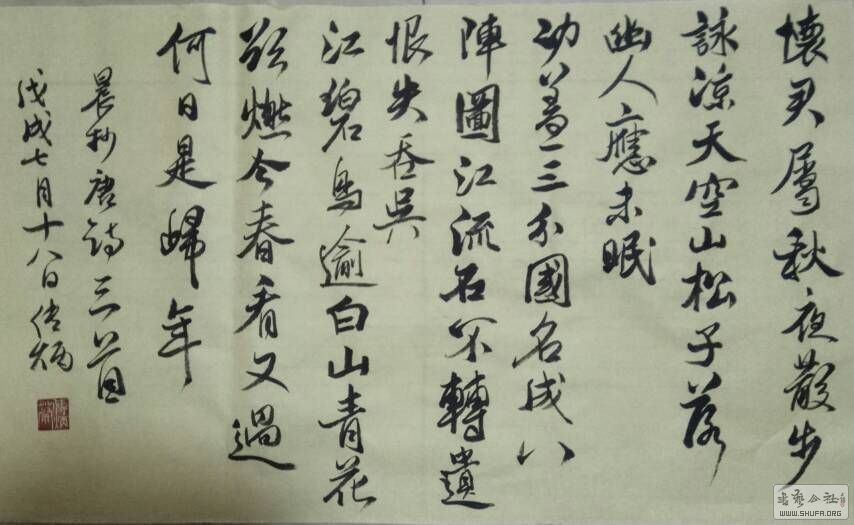 懷君屬秋夜散步
詠涼天空山松子落
幽人應未眠
功蓋三分國名成八
陣圖江流石不轉遺
恨失吞吳
江碧鳥逾白山青花
欲燃今春看又過
何日是歸年
晨抄唐詩三首
戊戌七月十八日傳炳
書藝公社
WWW.SHUFA.ORG